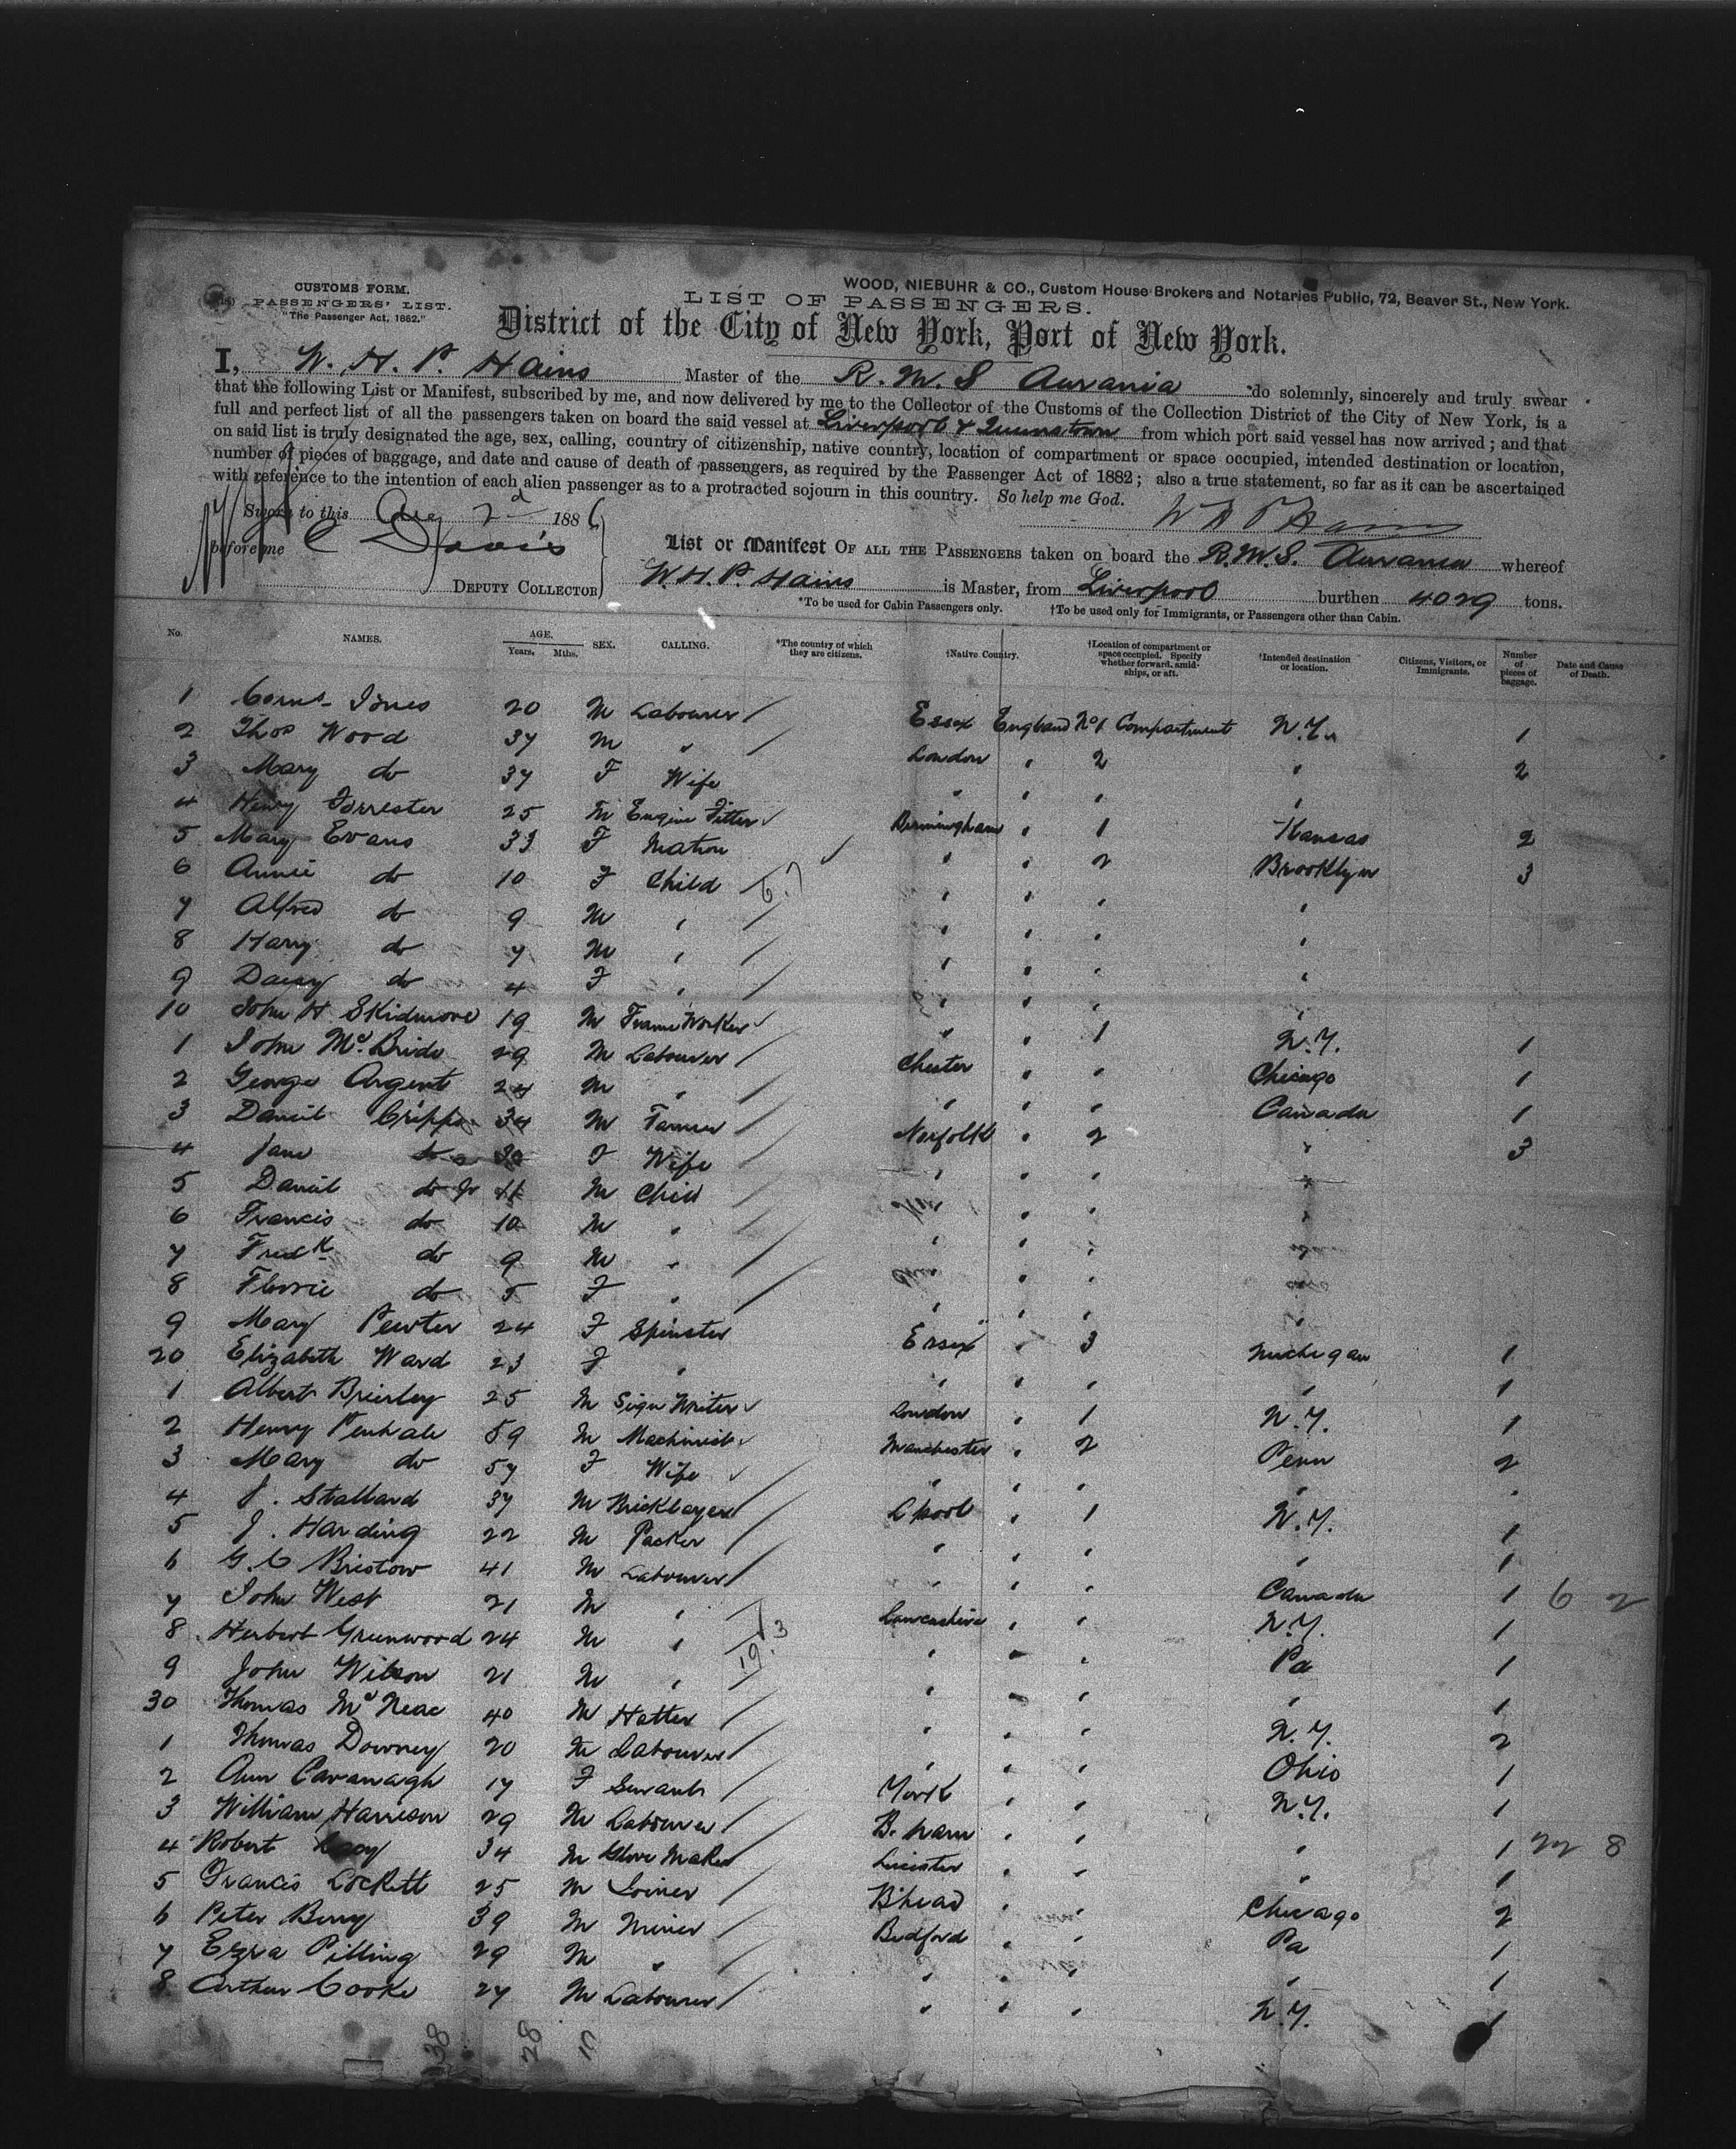 WOOD, NIEBUHR & CO., Custom House Brokers and Notaries Public, 72, Beaver St., New York.
CUSTOMS FORM.
PASSENGERS' LIST.
"The Passenger Act, 1882."
LIST OF PASSENGERS.
District of the City of New York, Port of New York.
I, W. H. P. Hains Master of the R. M. S Aurania do solemnly, sincerely and truly swear
that the following List or Manifest, subscribed by me, and now delivered by me to the Collector of the Customs of the Collection District of the City of New York, is a
full and perfect list of all the passengers taken on board the said vessel at Liverpool & Queenstown from which port said vessel has now arrived; and that
on said list is truly designated the age, sex, calling, country of citizenship, native country, location of compartment or space occupied, intended destination or location,
number of pieces of baggage, and date and cause of death of passengers, as required by the Passenger Act of 1882; also a true statement, so far as it can be ascertained
with reference to the intention of each alien passenger as to a protracted sojourn in this country. So help me God.
Sworn to this Aug 2d 1886 W H P Hains
before me C Davis
DEPUTY COLLECTOR
List or Manifest OF ALL THE PASSENGERS taken on board the R.M.S. Aurania whereof
W.H.P. Hains is Master, from Liverpool burthen 4029 tons.
*To be used for Cabin Passengers only. †To be used only for Immigrants, or Passengers other than Cabin.
No. NAMES. AGE. Years. Mths. SEX. CALLING. *The country of which they are citizens. †Native Country. †Location of compartment or space occupied. Specify whether forward, amidships, or aft. †Intended destination or location. Citizens, Visitors, or Immigrants. Number of pieces of baggage. Date and Cause of Death.
1 Jones 20 M Labourer Essex England No 1 Compartment N.Y. 1
2 Thos Wood 37 M " London " 2 " 2
3 Mary do 37 F Wife " " " "
4 Henry Forrester 25 M Engine Fitter Birmingham " 1 Kansas 2
5 Mary Evans 33 F Matron " " 2 Brooklyn 3
6 Annie do 10 F Child " " " "
7 Alfred do 9 M " " " " "
8 Harry do 7 M " " " " "
9 Daisy do 4 F " " " " "
10 John H. Skidmore 19 M Frame Worker " " 1 N.Y. 1
1 John McBride 29 M Labourer Chester " " Chicago 1
2 George Argent 24 M " " " " Canada 1
3 Daniel Cripps 34 M Farmer Norfolk " 2 " 3
4 Jane do 30 F Wife " " " "
5 Daniel do Jr 11 M Child " " " "
6 Francis do 10 M " " " "
7 Fredk do 9 M " " " "
8 Florrie do 5 F " " " " "
9 Mary Pewter 24 F Spinster Essex " 3 Michigan 1
20 Elizabeth Ward 23 F " " " " " 1
1 Albert Brierley 25 M Sign Writer London " 1 N.Y. 1
2 Henry Penhale 59 M Machinist Manchester " 2 Penn 2
3 Mary do 57 F Wife " " " " "
4 J. Stallard 37 M Bricklayer Lpool " 1 N.Y. 1
5 J. Harding 22 M Packer " " " " 1
6 G. C Bristow 41 M Labourer " " " Canada 1
7 John West 21 M " Lancashire " " N.Y. 1
8 Herbert Greenwood 24 M " " " " Pa 1
9 John Wilson 21 M " " " " " 1
30 Thomas 40 M Hatter " " " N.Y. 2
1 Thomas Downey 20 M Labourer " " " Ohio 1
2 Ann Cavanagh 17 F Servant York " " N.Y. 1
3 William Harrison 29 M Labourer B. ham " " " 1
4 Robert 34 M Glove Maker Leicester " " " 1
5 Francis Lockett 25 M Joiner B'head " " Chicago 2
6 Peter Berry 39 M Miner Bedford " " Pa 1
7 Ezra Pilling 29 M " " " " " 1
8 Arthur Cooke 27 M Labourer " " " N.Y. 1
6 2
22 8
38 28 10